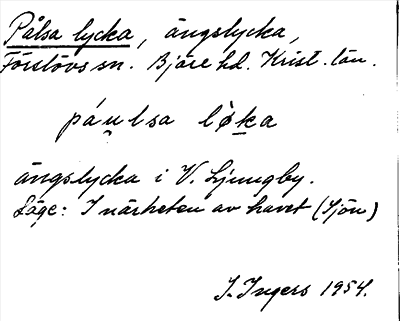 Pålsa lycka, ängslycka,
Förslövs sn. Bjäre hd. Krist. län.
páulsa lø̀ka
ängslycka i V. Ljungby.
Läge: I närheten av havet (Sjön)
I. Ingers 1954.